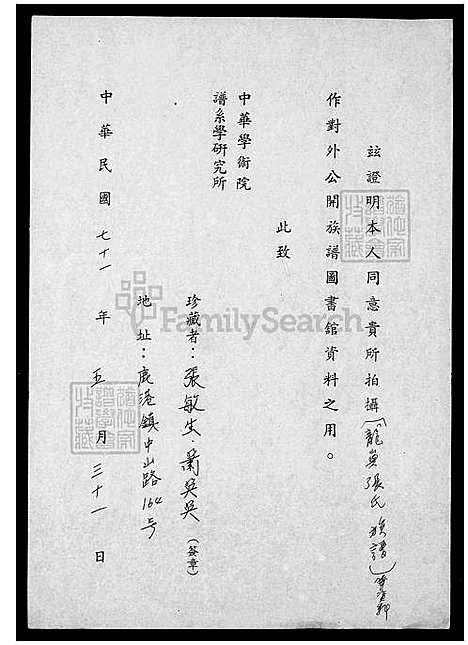 玆證明本人同意貴所拍攝(龍
張氏族譜)
作對外公開族譜圖書館資料之用。
此致
中華學術院
譜系學研究所
珍藏者：張敏生．蕭吳吳（簽章）
地址：鹿港鎮中山路164号
中華民國七十一年五月三十一日
FamilySearch